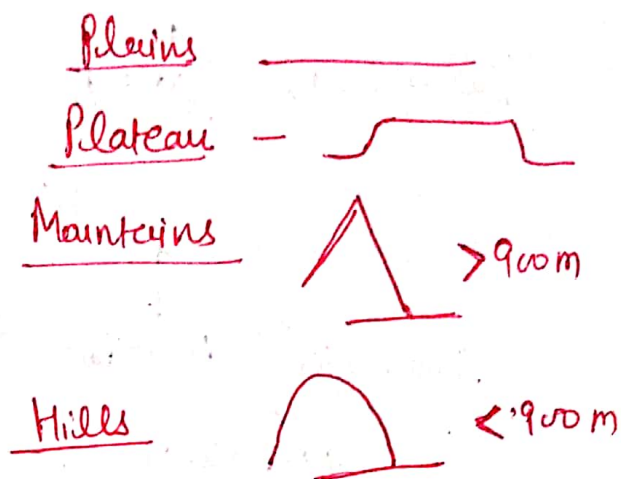 Plains
Plateau —
Mountains >900m
Hills <900m